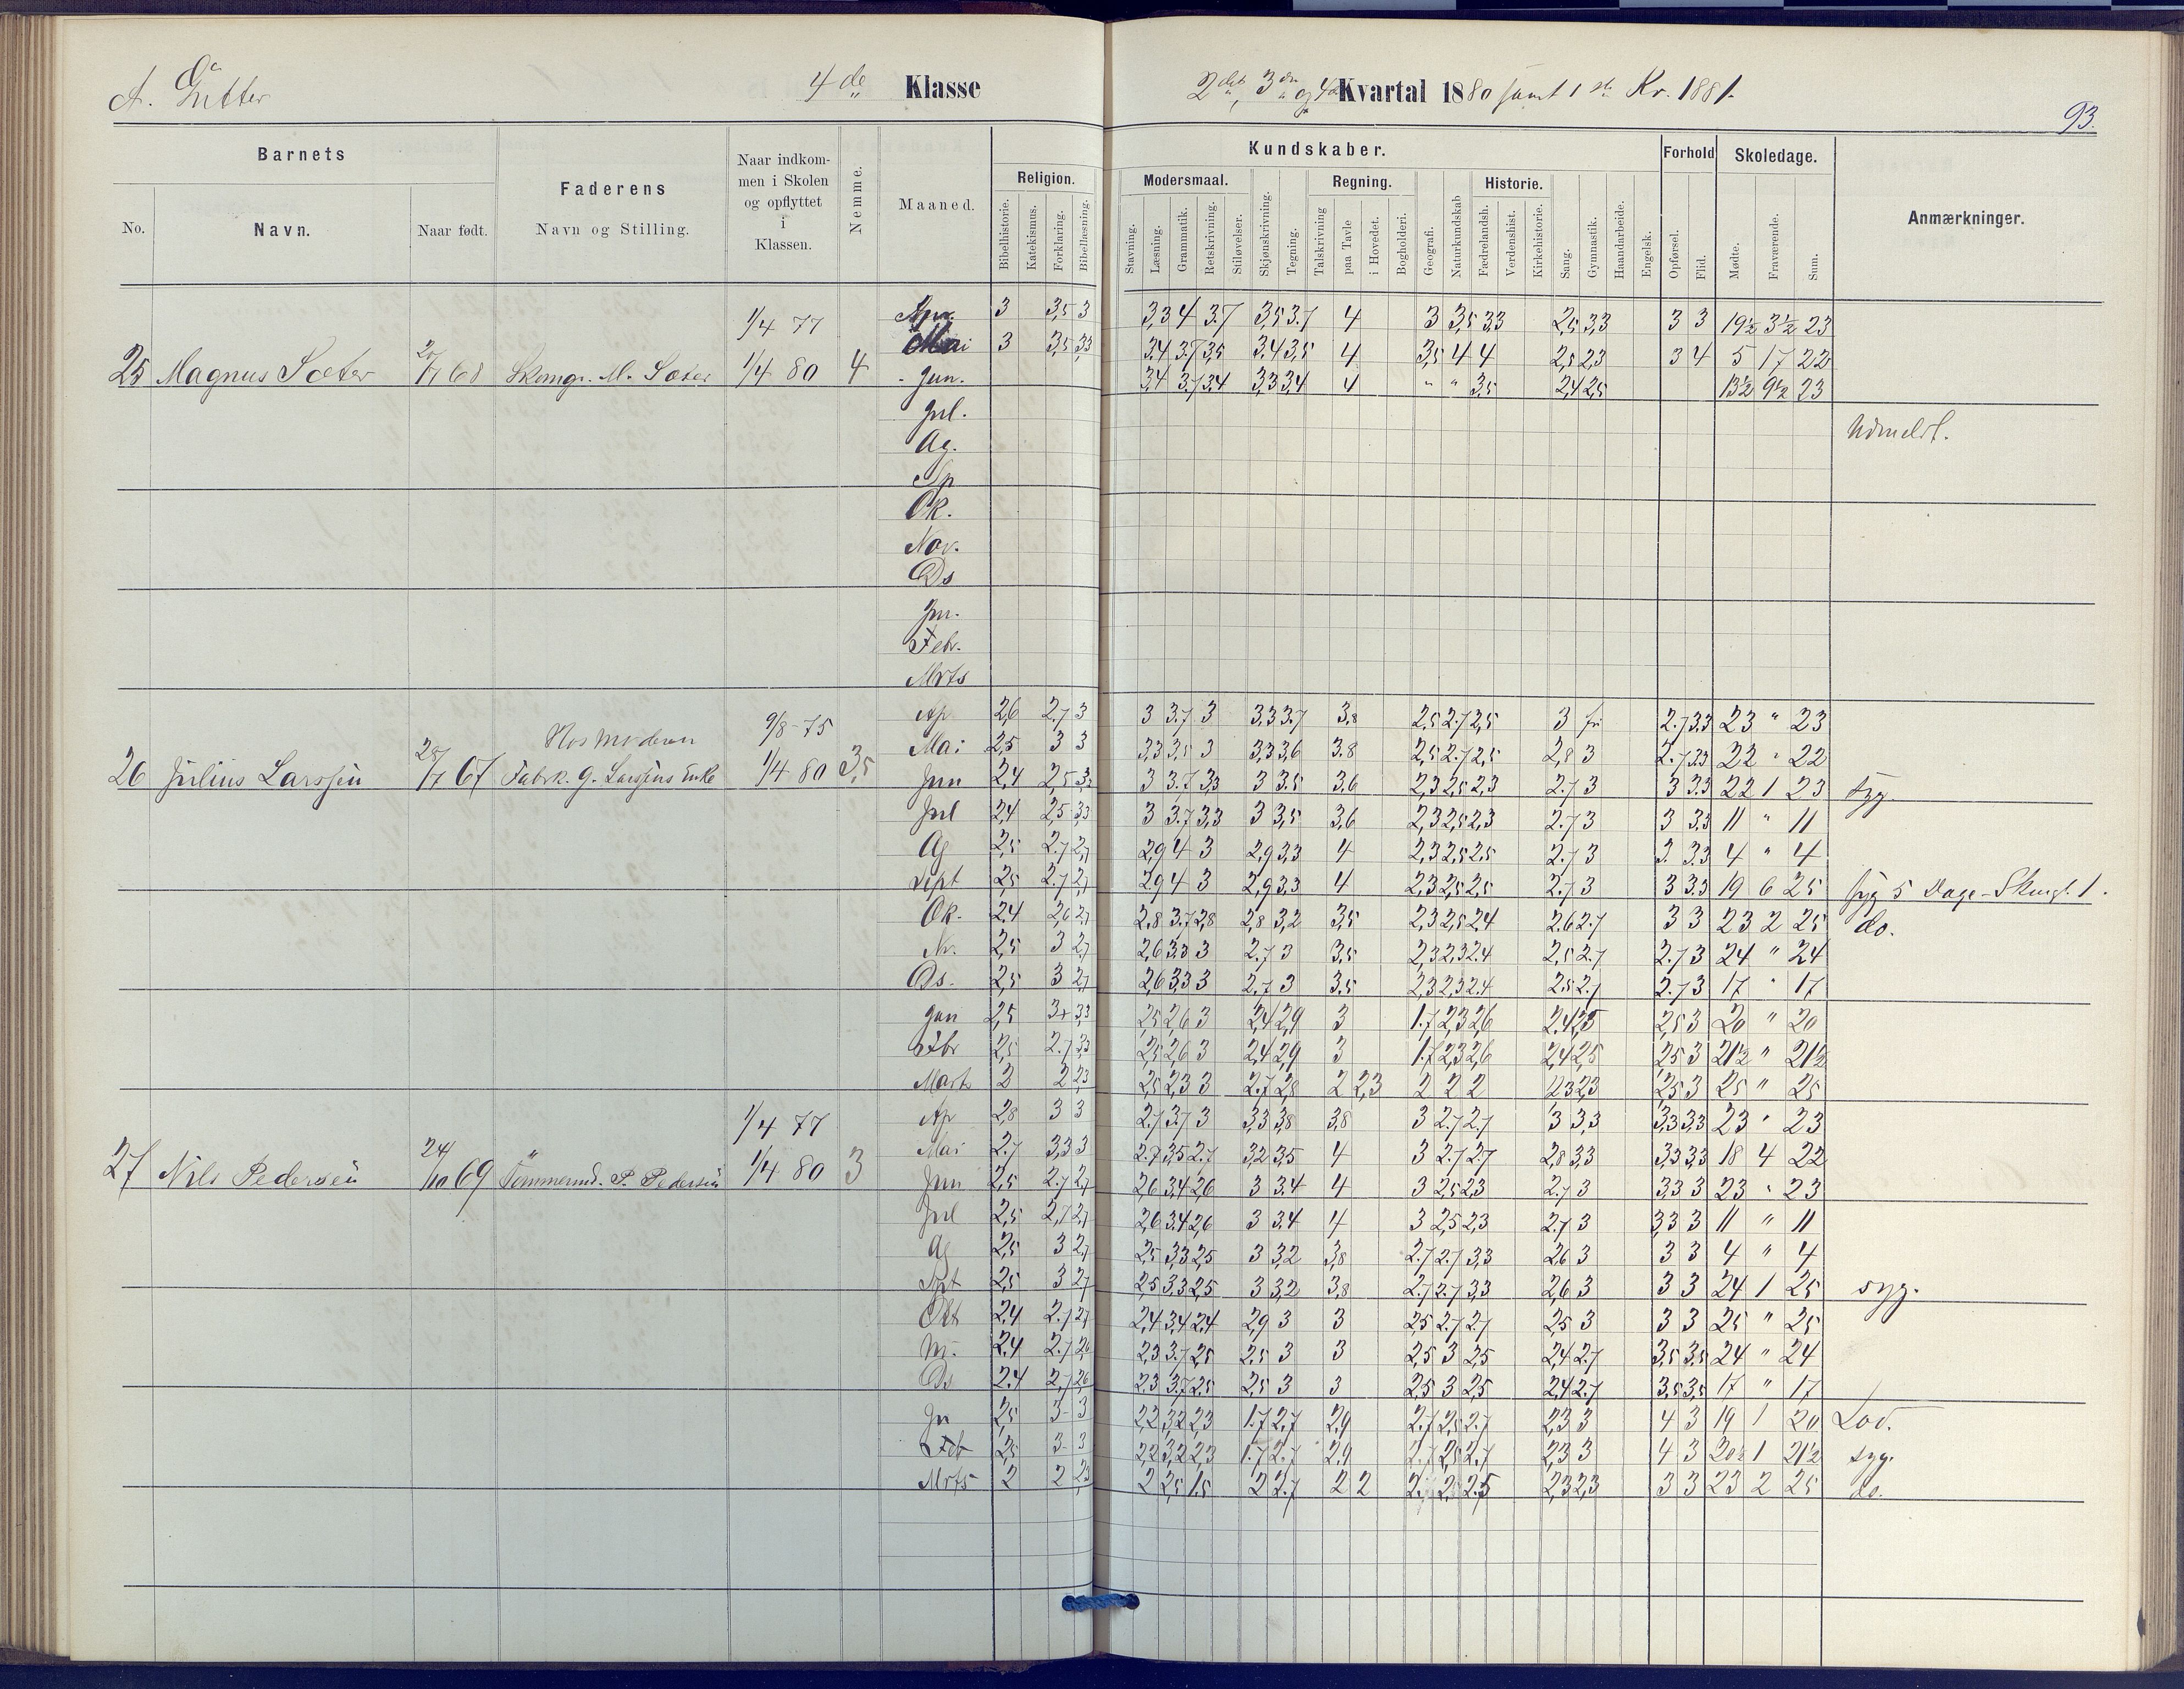 A. Gutter
4de Klasse
2det, 3die og 4de Kvartal 1880 samt 1ste Kv. 1881.
93.
Barnets
No.
Navn.
Naar født.
Faderens
Navn og Stilling.
Naar indkom-
men i Skolen
og opflyttet
i
Klassen.
Nemme.
Maaned.
Religion.
Bibelhistorie.
Katekismus.
Forklaring.
Bibellæsning.
Kundskaber.
Modersmaal.
Stavning.
Læsning.
Grammatik.
Retskrivning.
Stiløvelser.
Skjønskrivning.
Tegning.
Regning.
Talskrivning
paa Tavle
i Hovedet.
Bogholderi.
Geografi.
Naturkundskab
Historie.
Fædrelandsh.
Verdenshist.
Kirkehistorie.
Sang.
Gymnastik.
Haandarbeide.
Engelsk.
Forhold
Opførsel.
Flid.
Skoledage.
Mødte.
Fraværende.
Sum.
Anmærkninger.
1/4 77
25 Magnus Sæter 20/7 68 Skomgr. M. Sæter 1/4 80 4
Apr. 3 3,5 3 3,3 4 3.7 3,5 3.7 4 3 3,5 3,3 2,5 3,3 3 3 19½ 3½ 23
Mai 3 3,5 3,3 3,4 3.7 3,5 3,4 3,5 4 3,5 4 4 2,5 2,3 3 4 5 17 22
Jun. 3,4 3.7 3,4 3,3 3,4 4 " " 3,5 2,4 2,5 13½ 9½ 23
Jul. Udmeldt.
Ag.
Sp
Ok.
Nov.
Ds
Jn.
Febr.
Mrts
9/8-75
Hos Moderen
26 Julius Larssen 28/7 67 Fabrk. G. Larssens Enke 1/4 80 3,5
Ap 2,6 2.7 3 3 3.7 3 3,3 3.7 3,8 2,5 2.7 2,5 3 fri 2.7 3.3 23 " 23
Mai 2,5 3 3 3,3 3,5 3 3,3 3,6 3.8 2,5 2.7 2,5 2,8 3 2.7 3.3 22 " 22
Jun 2,4 2,5 3,3 3 3.7 3,3 3 3.5 3,6 2,3 2,5 2,3 2.7 3 3 3.3 22 1 23 Syg.
Jul 2,4 2,5 3,3 3 3.7 3,3 3 3,5 3,6 2,3 2,5 2,3 2.7 3 3 3.3 11 " 11
Ag 2,5 2.7 2,7 2,9 4 3 2,9 3,3 4 2,3 2,5 2,5 2.7 3 3 3.3 4 " 4
Sept 2,5 2.7 2,7 2,9 4 3 2,9 3,3 4 2,3 2,5 2,5 2.7 3 3 3.3 19 6 25 syg 5 Dage - Skulgt. 1.
Ok. 2,4 2,6 2,7 2,8 3.7 2,8 2,8 3,2 3,5 2,3 2,5 2,4 2.6 2.7 3 3 23 2 25 do.
Nv. 2,5 3 2,7 2,6 3,3 3 2.7 3 3,5 2,3 2,3 2.4 2,5 2.7 2.7 3 24 " 24
Ds. 2,5 3 2,7 2,6 3,3 3 2,7 3 3,5 2,3 2,3 2.4 2.5 2.7 2.7 3 17 " 17
Jan 2,5 3+ 3,3 2,5 2,6 3 2,4 2,9 3 1.7 2,3 2,6 2,4 2,5 2,5 3 20 " 20
Fbr 2,5 2.7 3,3 2,5 2,6 3 2,4 2,9 3 1.7 2,3 2,6 2,4 2,5 2,5 3 21½ " 21½
Marts 2 2 2,3 2,5 2,3 3 2.7 2,8 2 2,3 2 2 2 2,3 2,3 2,5 3 25 " 25
1/4 77
27 Nils Pedersen 24/10 69 Tömmermd. P. Pedersen 1/4 80 3
Ap 2,8 3 3 2.7 3.7 3 3,3 3,8 3,8 3 2.7 2.7 3 3,3 3,3 3,3 23 " 23
Mai 2.7 3,3 3 2.7 3,5 2.7 3,2 3,5 4 3 2.7 2.7 2,8 3,3 3,3 3,3 18 4 22
Jun 2,5 2.7 2,7 2,6 3,4 2,6 3 3.4 4 3 2,5 2,3 2.7 3 3,3 3 23 " 23
Jul 2,5 2,7 2,7 2,6 3.4 2,6 3 3.4 4 3 2,5 2,3 2.7 3 3,3 3 11 " 11
Ag 2,5 3 2,7 2,5 3,3 2,5 3 3,2 3,8 2.7 2.7 3,3 2,6 3 3 3 4 " 4
Spt 2,5 3 2,7 2,5 3,3 2,5 3 3,2 3,8 2.7 2.7 3,3 2,6 3 3 3 24 1 25 syg.
Okt 2,4 2.7 2,7 2,4 3,4 2,4 2,9 3 3 2,5 2.7 2.7 2,5 3 3 3 25 " 25
Nv. 2.4 2.7 2,6 2,3 3.7 2,5 2,5 3 3 2,5 3 2,5 2,4 2.7 3,5 3,5 24 " 24
Ds 2.4 2,7 2,6 2,3 3.7 2,5 2,5 3 3 2,5 3 2,5 2,4 2.7 3,5 3,5 17 " 17
Jn 2,5 3- 3 2,2 3,2 2,3 1.7 2,7 2,9 2.7 2,5 2.7 2,3 3 4 3 19 1 20 Lov.
Feb 2,5 3- 3 2,2 3,2 2,3 1.7 2.7 2.9 2.7 2,5 2.7 2,3 3 4 3 20½ 1 21½ syg.
Mrts 2 2 2,3 2 2,5 1.5 2 2.7 2 2 2. 2. 2.5 2,3 2,3 3 3 23 2 25 do.